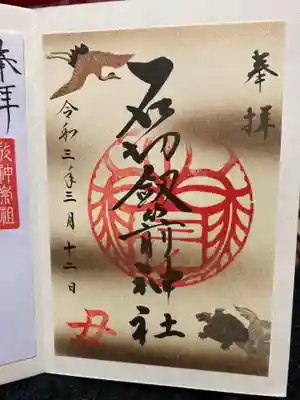 奉拝
石切劔箭神社
令和三年三月十二日
丑
奉拝
敬神崇祖